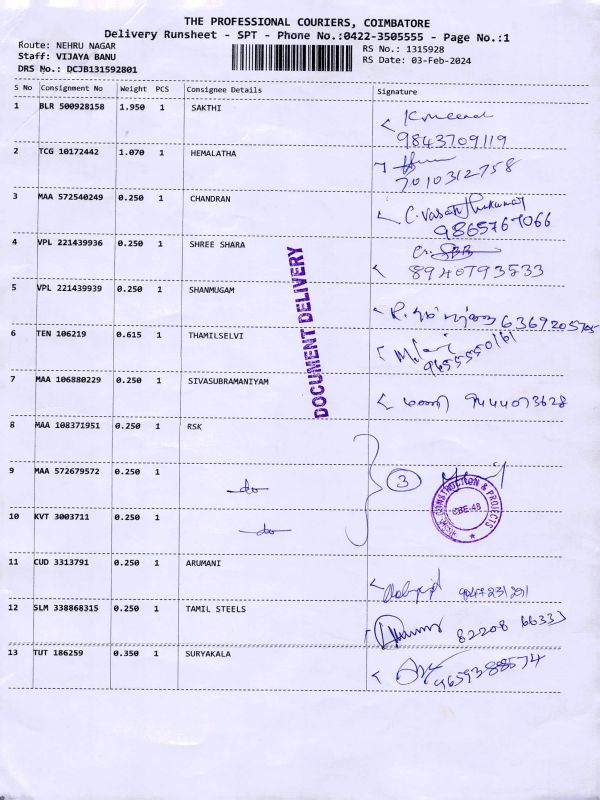 THE PROFESSIONAL COURIERS, COIMBATORE
Delivery Runsheet - SPT - Phone No.:0422-3505555 - Page No.:1
Route: NEHRU NAGAR
Staff: VIJAYA BANU
DRS No.: DCJB131592801
RS No.: 1315928
RS Date: 03-Feb-2024
S No Consignment No Weight PCS Consignee Details Signature
1 BLR 500928158 1.950 1 SAKTHI
9843709119
2 TCG 10172442 1.070 1 HEMALATHA
7010312758
3 MAA 572540249 0.250 1 CHANDRAN
9865767066
4 VPL 221439936 0.250 1 SHREE SHARA
8940793533
5 VPL 221439939 0.250 1 SHANMUGAM
6 TEN 106219 0.615 1 THAMILSELVI
9655550161
7 MAA 106880229 0.250 1 SIVASUBRAMANIYAM
9444073628
DOCUMENT DELIVERY
8 MAA 108371951 0.250 1 RSK
9 MAA 572679572 0.250 1
do
3
CONSTRUCTION & PROJECTS
CBE-48
10 KVT 3003711 0.250 1
do
11 CUD 3313791 0.250 1 ARUMANI
12 SLM 338868315 0.250 1 TAMIL STEELS
82208 66333
13 TUT 186259 0.350 1 SURYAKALA